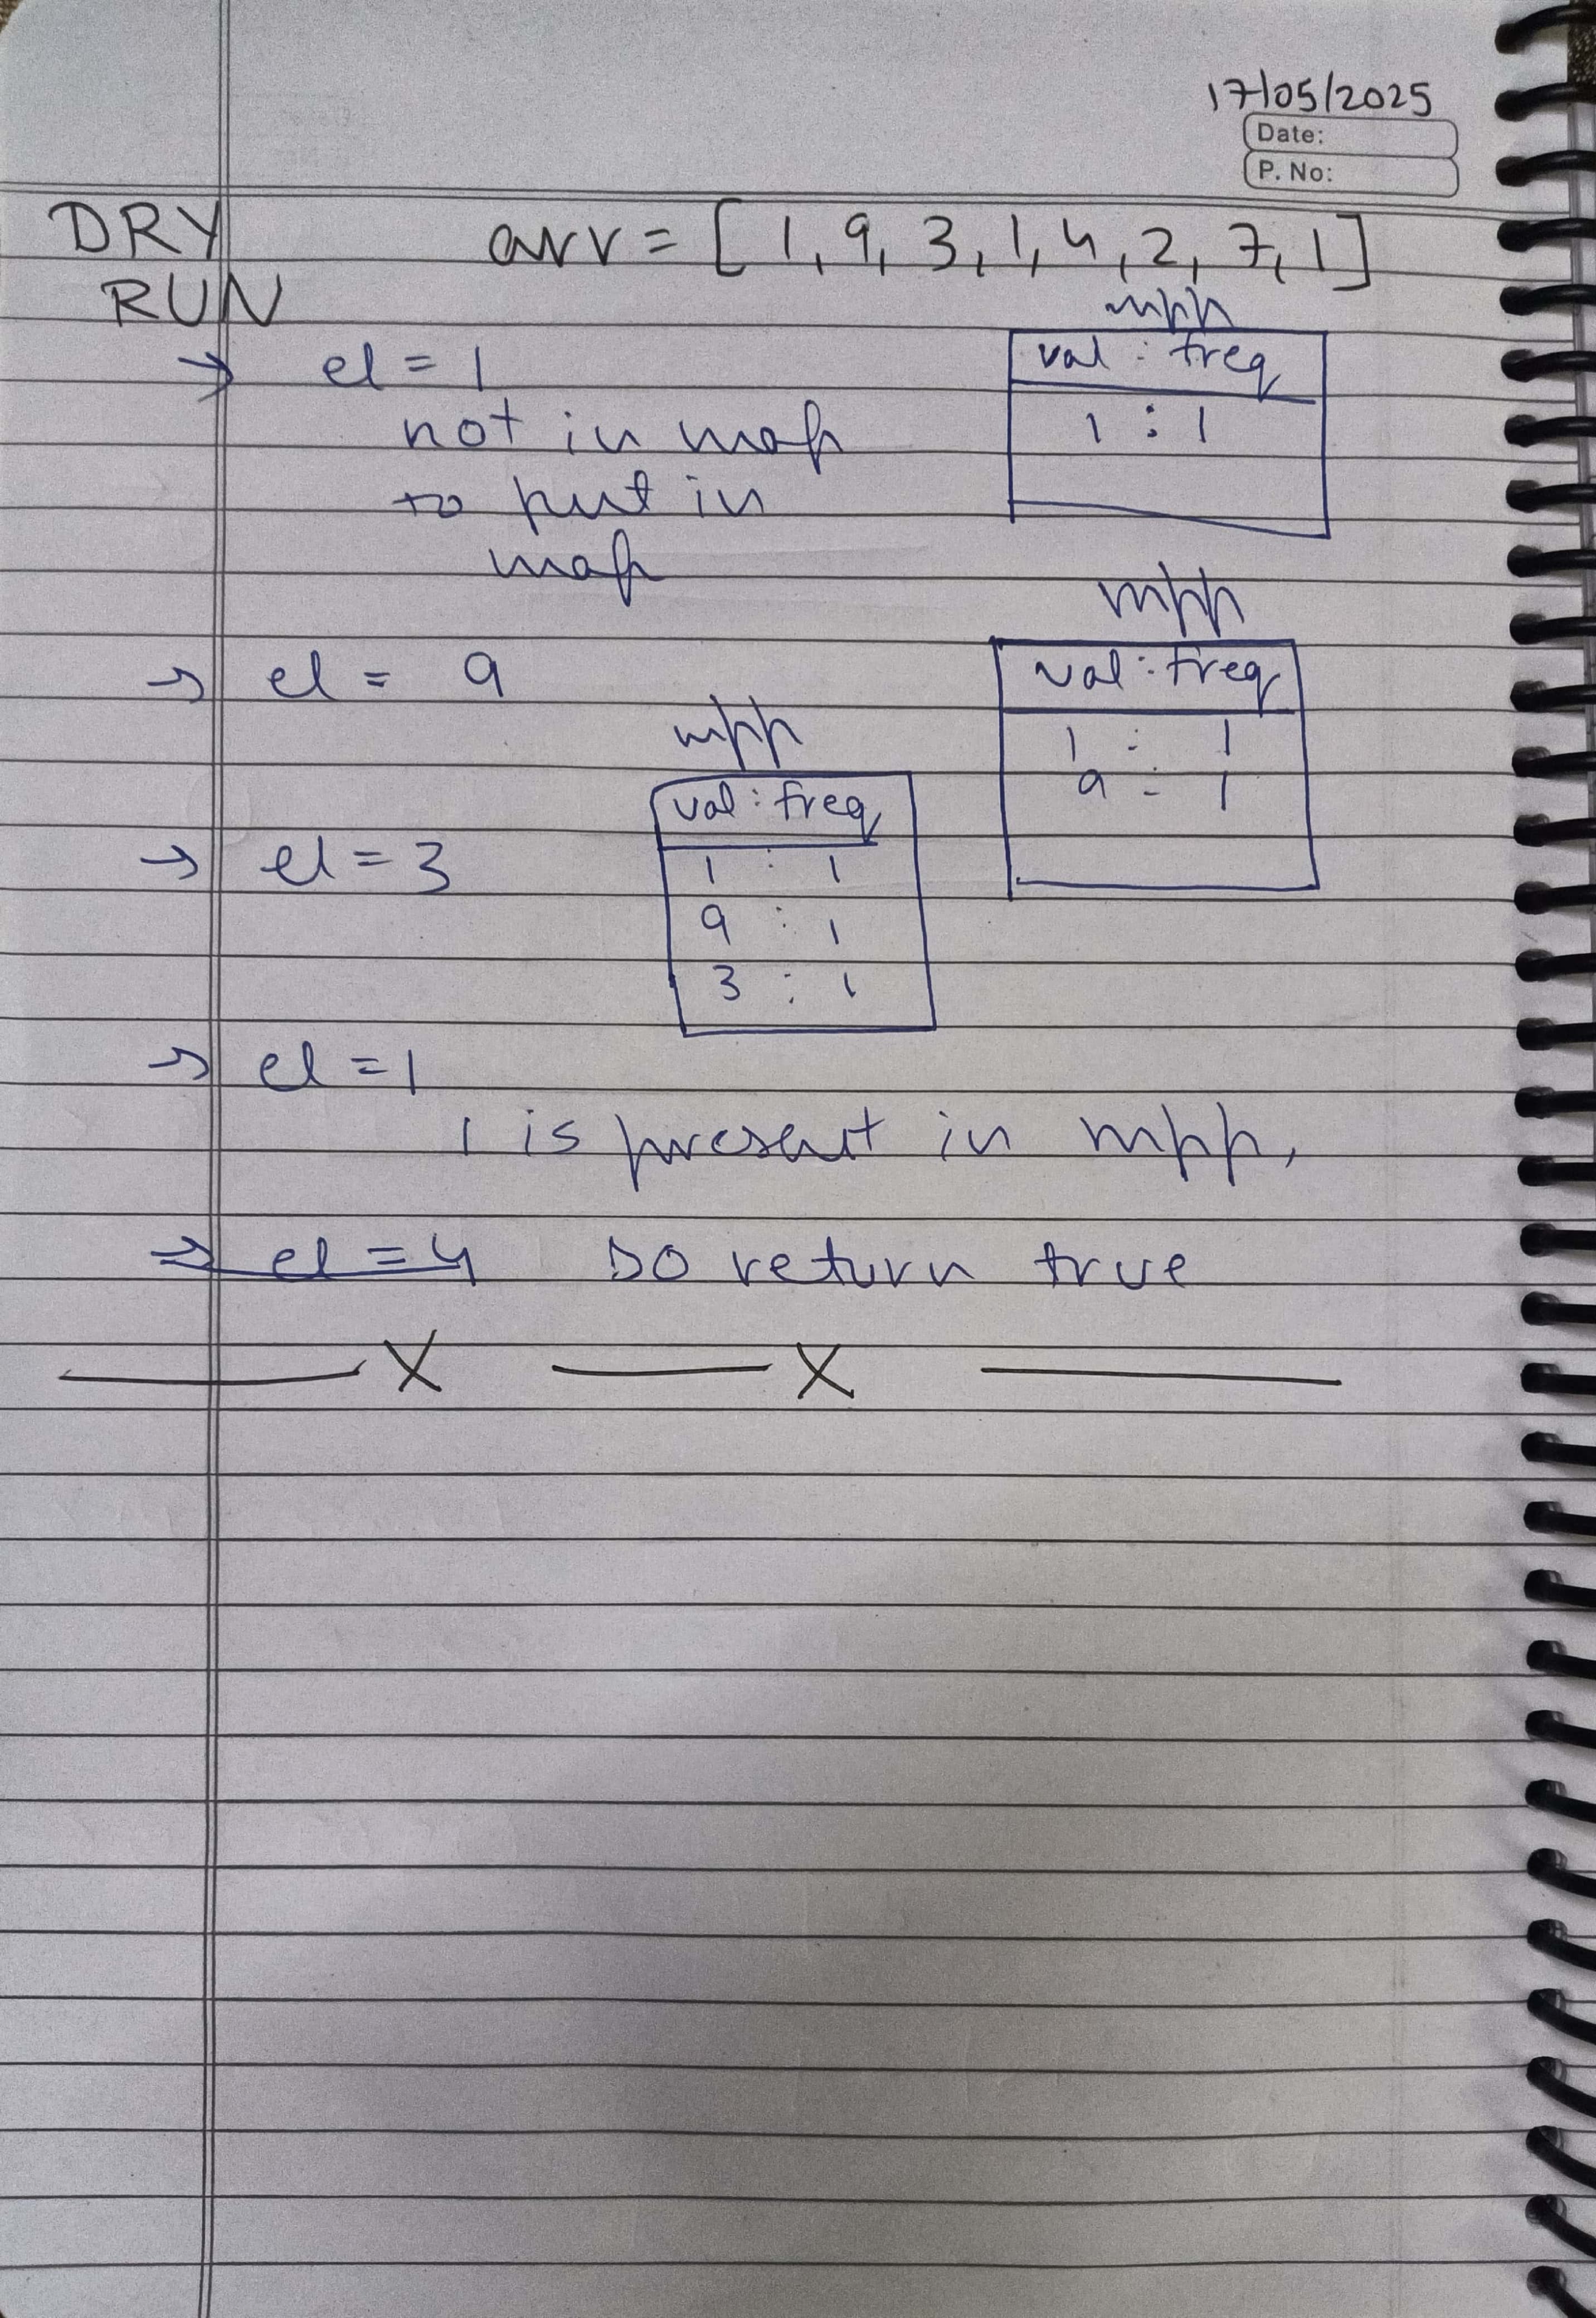 17/05/2025
Date:
P. No:
DRY
RUN
arr = [1, 9, 3, 1, 4, 2, 7, 1]
→ el = 1
not in map
to put in
map
mpp
val : freq
1 : 1
→ el = 9
mpp
val : freq
1 : 1
9 : 1
→ el = 3
mpp
val : freq
1 : 1
9 : 1
3 : 1
→ el = 1
1 is present in mpp,
⇒ el = 4 so return true
——— X ——— X ———